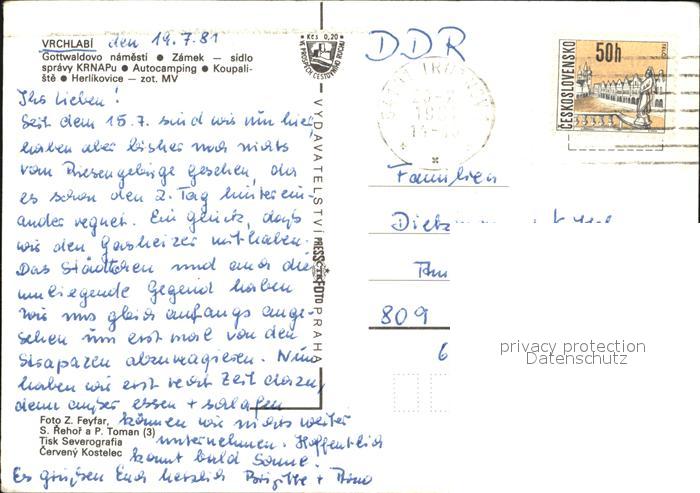 VRCHLABÍ den 19.7.81
Gottwaldovo náměstí ● Zámek — sídlo
správy KRNAPu ● Autocamping ● Koupali-
ště ● Herlíkovice — zot. MV
Ihr Lieben!
Seit dem 15.7. sind wir nun hier
haben aber bisher noch nichts
vom Riesengebirge gesehen, da
es schon den 2. Tag hinterein-
ander regnet. Ein Glück, daß
wir den Gasheizer mithaben.
Das Städtchen und auch die
umliegende Gegend haben
wir uns gleich anfangs ange-
sehen um erst mal von den
Strapazen abzureagieren. Nun
haben wir erst recht Zeit dazu,
denn außer essen + schlafen
können wir nichts weiter
unternehmen. Hoffentlich
kommt bald Sonne.
Es grüßen Euch herzlich Brigitte +
Foto Z. Feyfar,
S. Řehoř a P. Toman (3)
Tisk Severografia
Červený Kostelec
VYDAVATELSTVÍ PRESSFOTO PRAHA
Kčs 0,20
DDR
ČESKOSLOVENSKO
50h
TELČ
Familien
809
6
privacy protection
Datenschutz